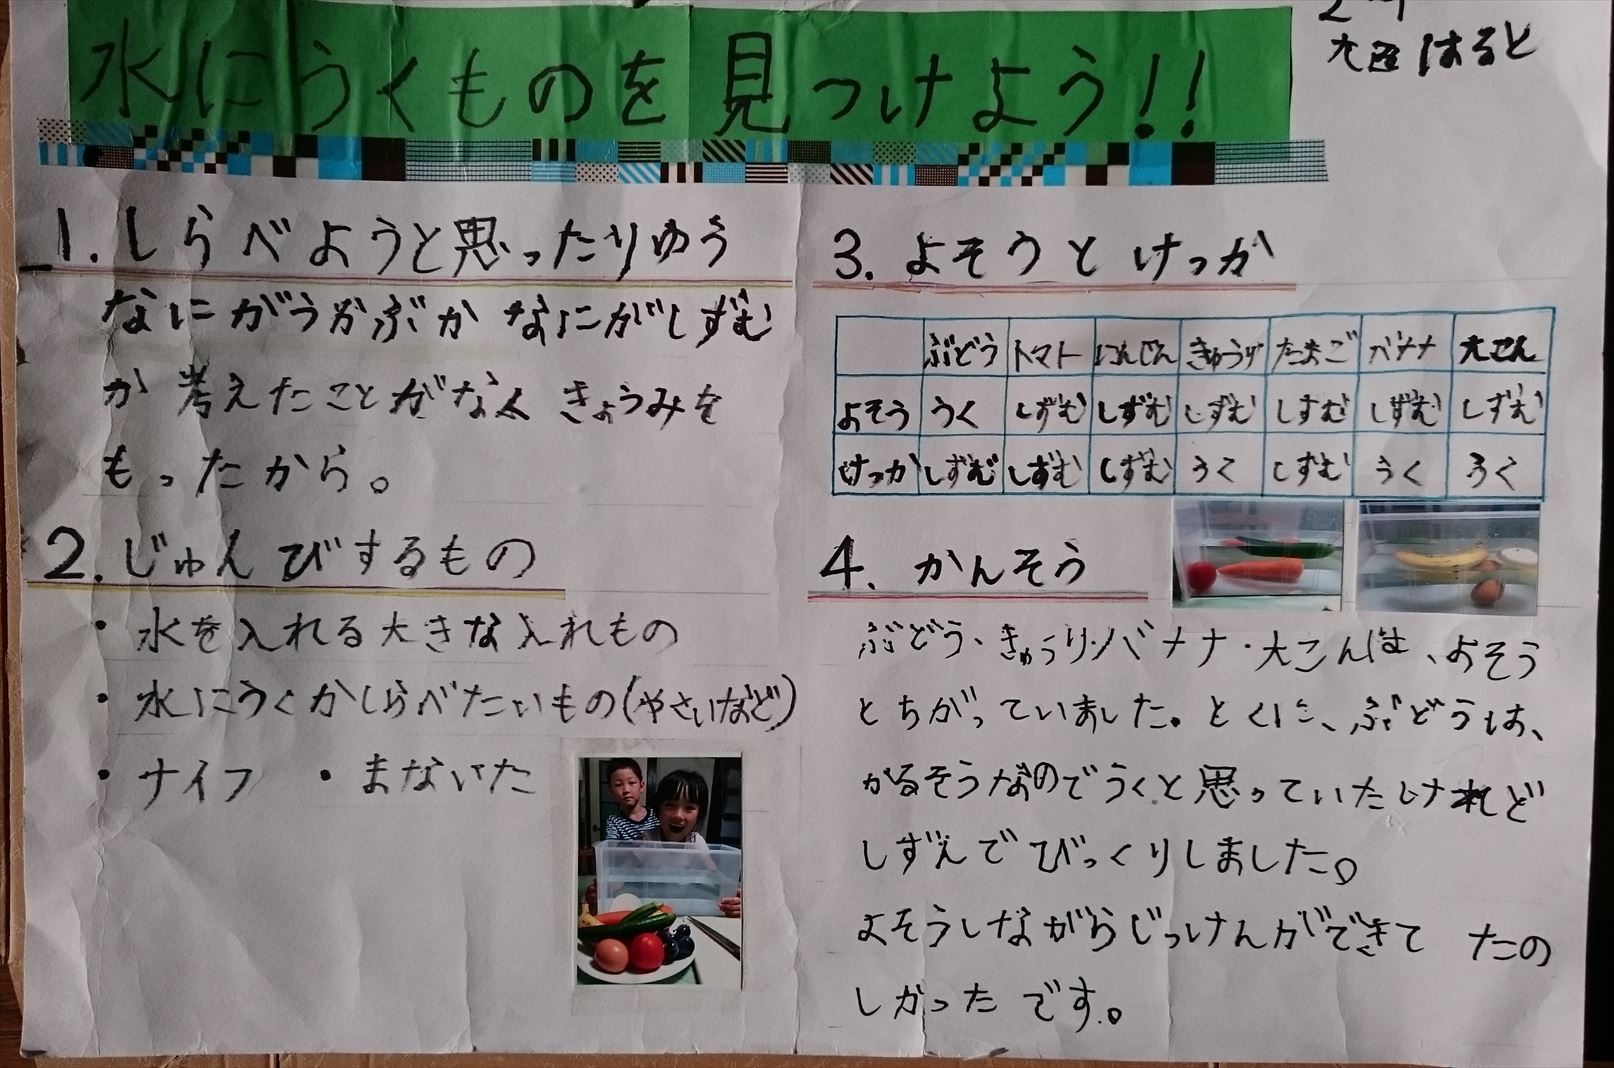 水にうくものを見つけよう!!
はると
1. しらべようと思ったりゆう
なにがうかぶか なにがしずむ
か 考えたことがなく きょうみを
もったから。
2. じゅんびするもの
・水を入れる大きな入れもの
・水にうくかしらべたいもの(やさいなど)
・ナイフ ・まないた
3. よそうと けっか
ぶどう トマト にんじん きゅうり たまご バナナ 大こん
よそう うく しずむ しずむ しずむ しずむ しずむ しずむ
けっか しずむ しずむ しずむ うく しずむ うく うく
4. かんそう
ぶどう、きゅうり・バナナ・大こんは、よそう
とちがっていました。とくに、ぶどうは、
かるそうなのでうくと思っていたけれど
しずんでびっくりしました。
よそうしながらじっけんができて たの
しかったです。